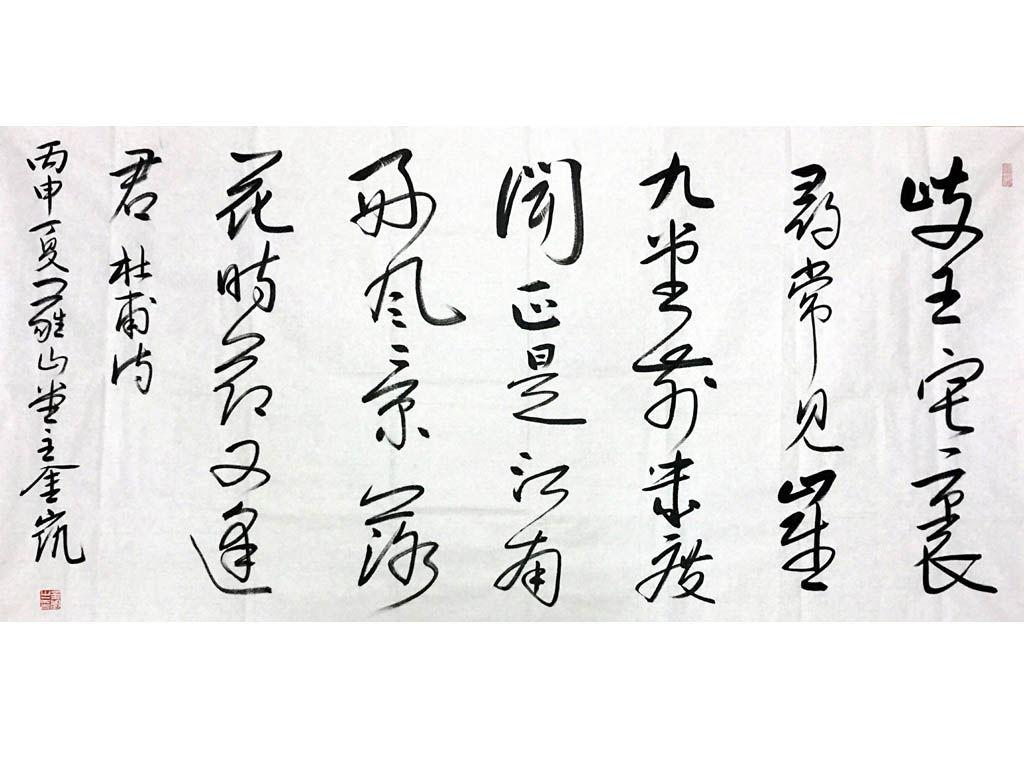 岐王宅裏
尋常見崔
九堂前幾度
聞正是江南
好風景落
花時節又逢
君 杜甫詩
丙申夏羅山堂主金凱